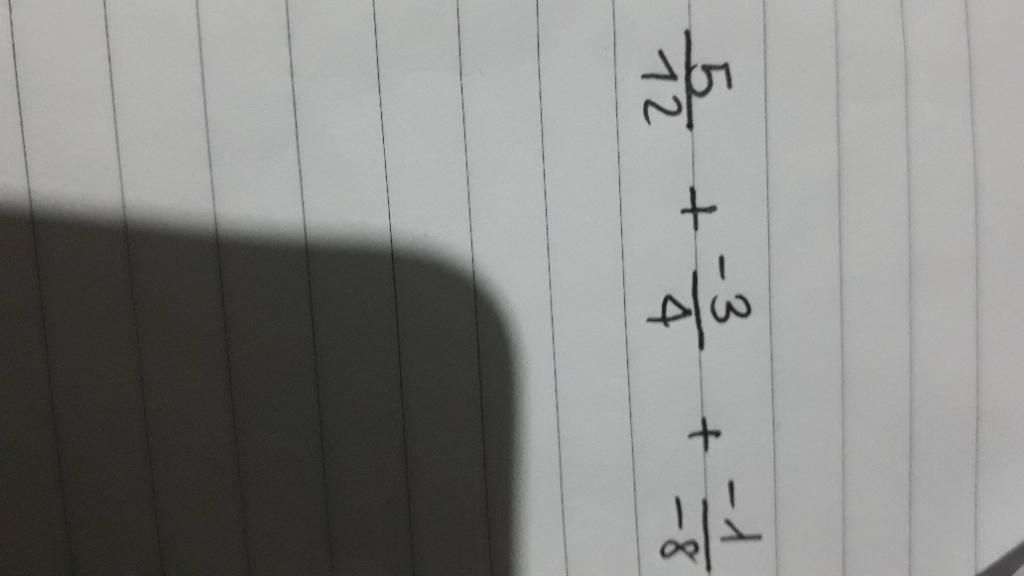 5/12 + -3/4 + -1/-8